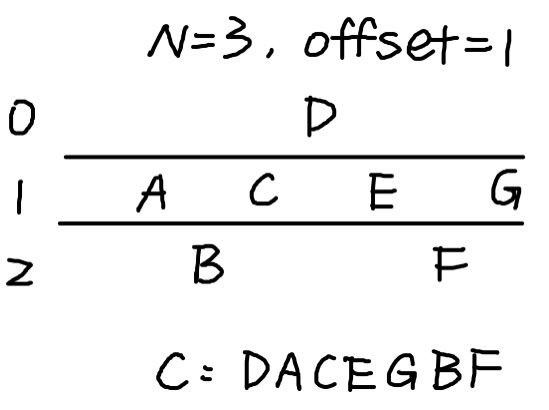 N=3, offset=1
0 D
1 A C E G
2 B F
C: DACEGBF